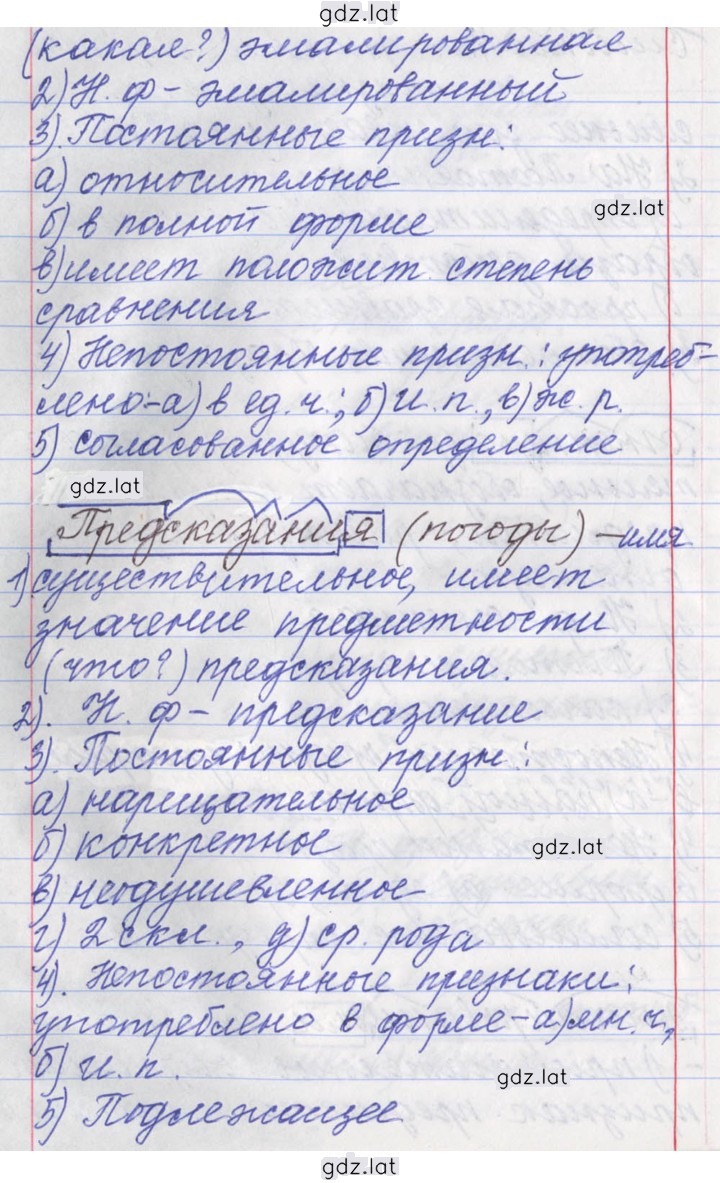 gdz.lat
(какая?) эмалированная
2) Н. ф - эмалированный
3). Постоянные призн:
а) относительное
gdz.lat
б) в полной форме
в) имеет положит. степень
сравнения
4) Непостоянные призн.: употреб-
лено-а) в ед. ч.; б) И. п., в) ж. р.
5) согласованное определение
gdz.lat
Предсказания (погоды) - имя
1) существительное, имеет
значение предметности
(что?) предсказания.
2). Н. ф - предсказание
3). Постоянные призн:
а) нарицательное
б) конкретное
gdz.lat
в) неодушевленное
г) 2 скл., д) ср. рода
4). Непостоянные признаки:
употреблено в форме - а) мн. ч,
б) И. п.
gdz.lat
5) Подлежащее
gdz.lat